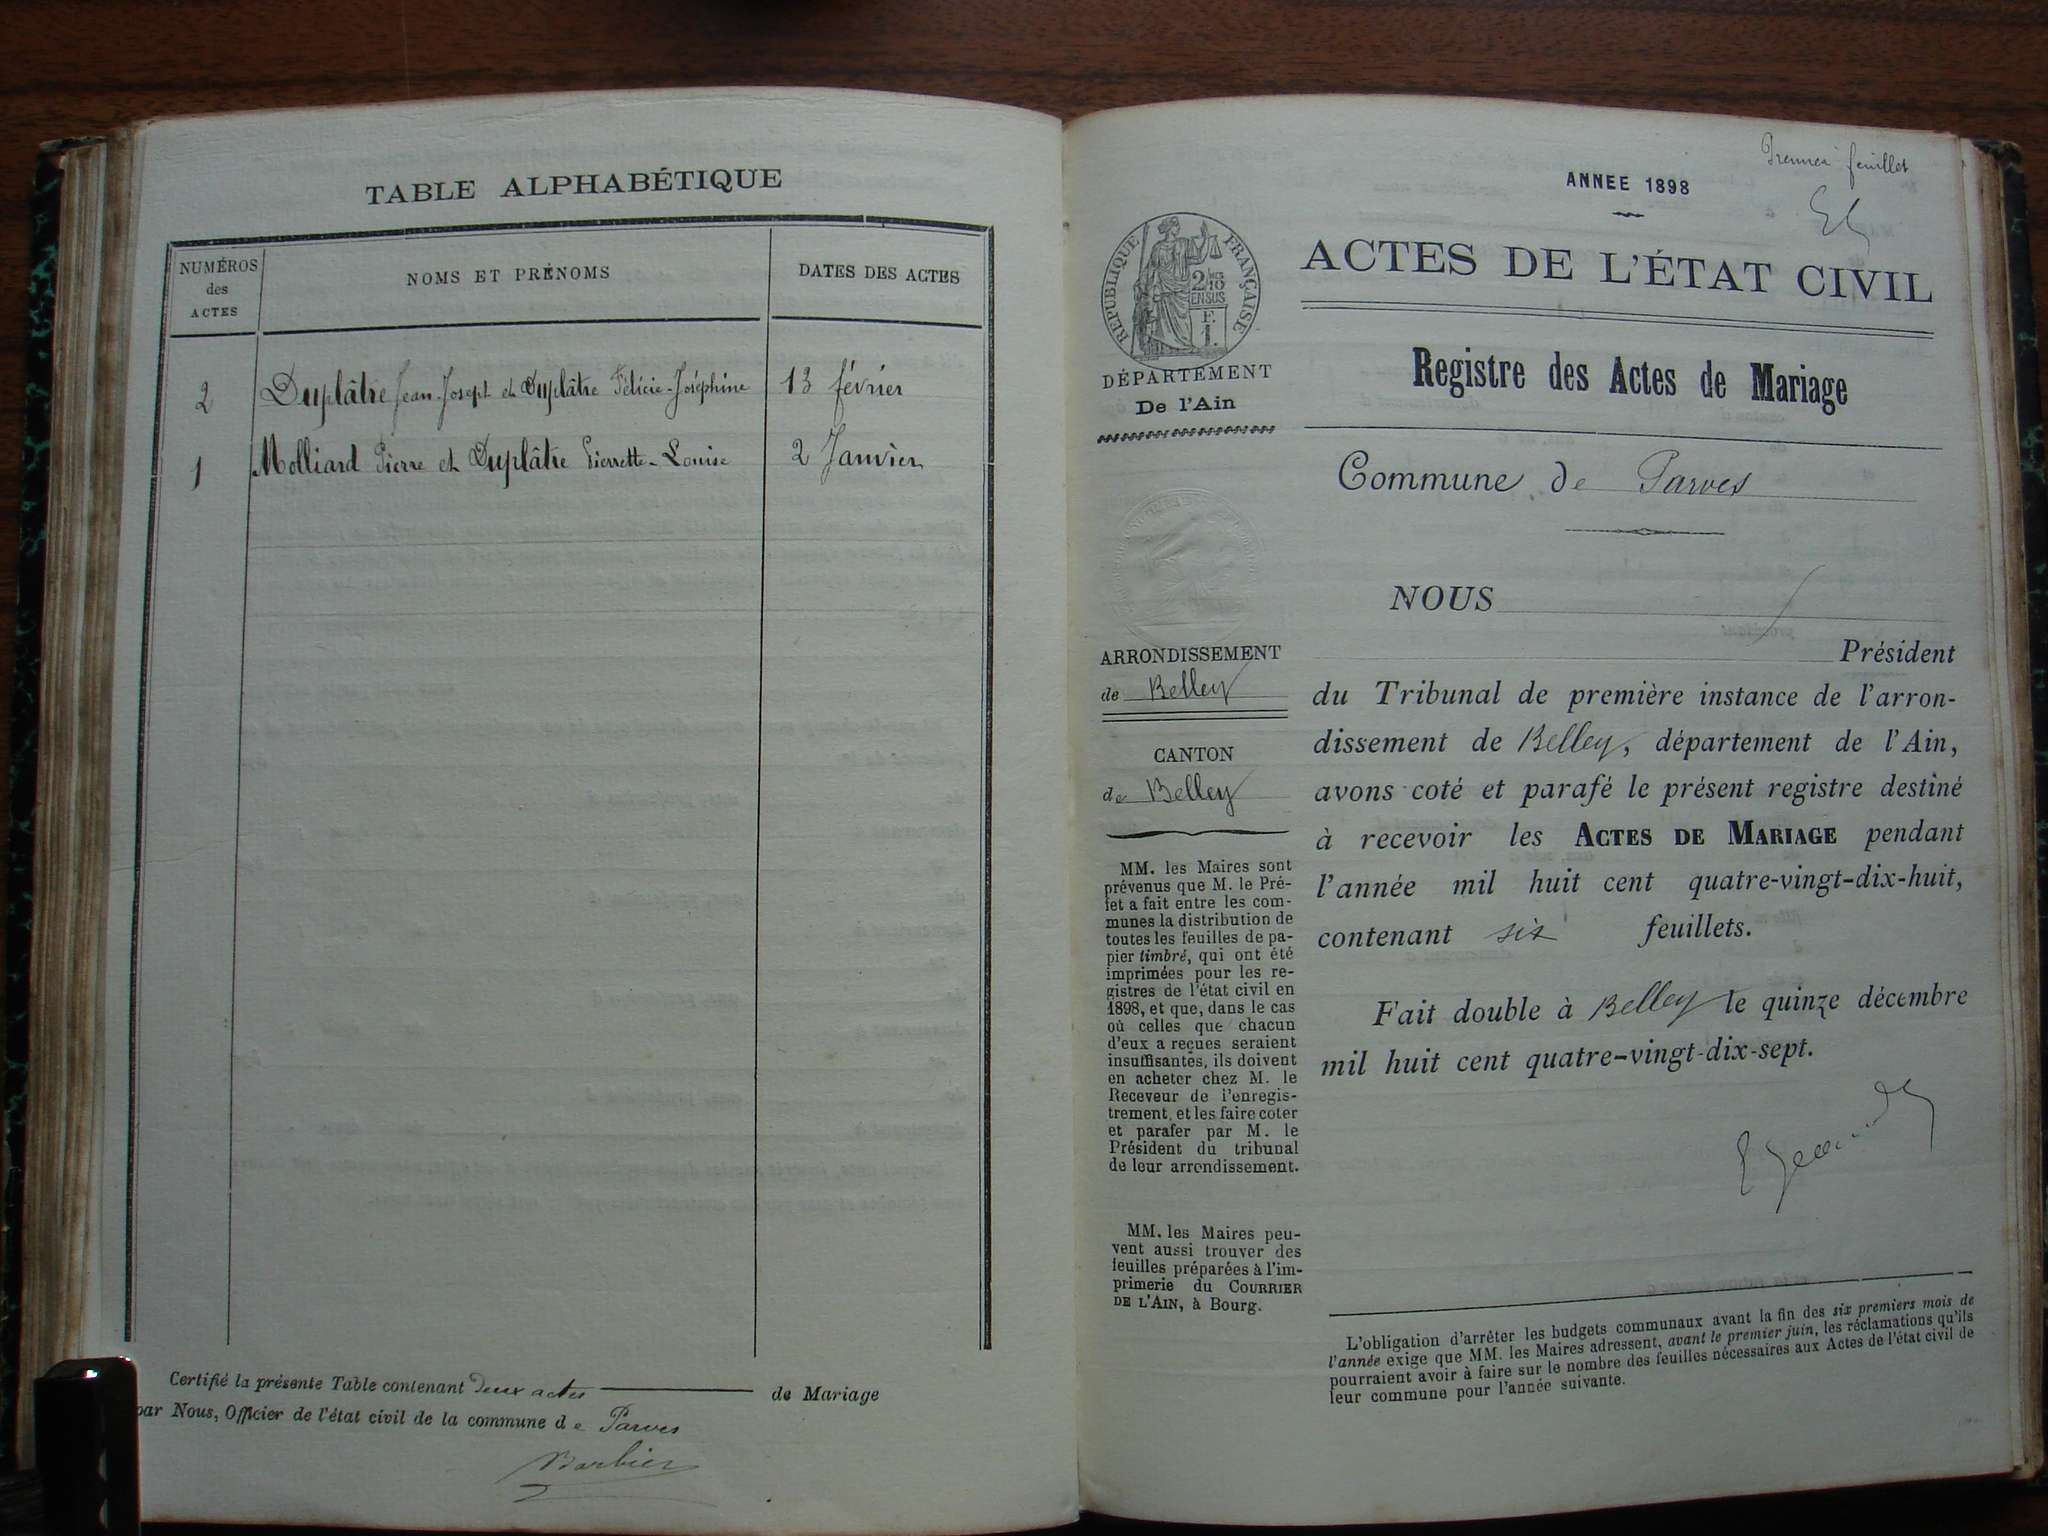 TABLE ALPHABÉTIQUE
NUMÉROS
des
ACTES
NOMS ET PRÉNOMS
DATES DES ACTES
2 Duplâtre Jean-Joseph et Duplâtre Félicie-Joséphine 13 février
1 Molliard Pierre et Duplâtre Pierrette-Louise 2 Janvier
Certifié la présente Table contenant deux actes de Mariage
par Nous, Officier de l'état civil de la commune de Parves
Barbier
Premier feuillet
ANNEE 1898
RÉPUBLIQUE FRANÇAISE
2/10
EN SUS
F.
1.
DÉPARTEMENT
De l'Ain
ACTES DE L'ÉTAT CIVIL
Registre des Actes de Mariage
Commune de Parves
ARRONDISSEMENT
de Belley
CANTON
de Belley
MM. les Maires sont
prévenus que M. le Pré-
fet a fait entre les com-
munes la distribution de
toutes les feuilles de pa-
pier timbré, qui ont été
imprimées pour les re-
gistres de l'état civil en
1898, et que, dans le cas
où celles que chacun
d'eux a reçues seraient
insuffisantes, ils doivent
en acheter chez M. le
Receveur de l'enregis-
trement, et les faire coter
et parafer par M. le
Président du tribunal
de leur arrondissement.
MM. les Maires peu-
vent aussi trouver des
feuilles préparées à l'im-
primerie du COURRIER
DE L'AIN, à Bourg.
NOUS
Président
du Tribunal de première instance de l'arron-
dissement de Belley, département de l'Ain,
avons coté et parafé le présent registre destiné
à recevoir les ACTES DE MARIAGE pendant
l'année mil huit cent quatre-vingt-dix-huit,
contenant six feuillets.
Fait double à Belley le quinze décembre
mil huit cent quatre-vingt-dix-sept.
L'obligation d'arrêter les budgets communaux avant la fin des six premiers mois de
l'année exige que MM. les Maires adressent, avant le premier juin, les réclamations qu'ils
pourraient avoir à faire sur le nombre des feuilles nécessaires aux Actes de l'état civil de
leur commune pour l'année suivante.